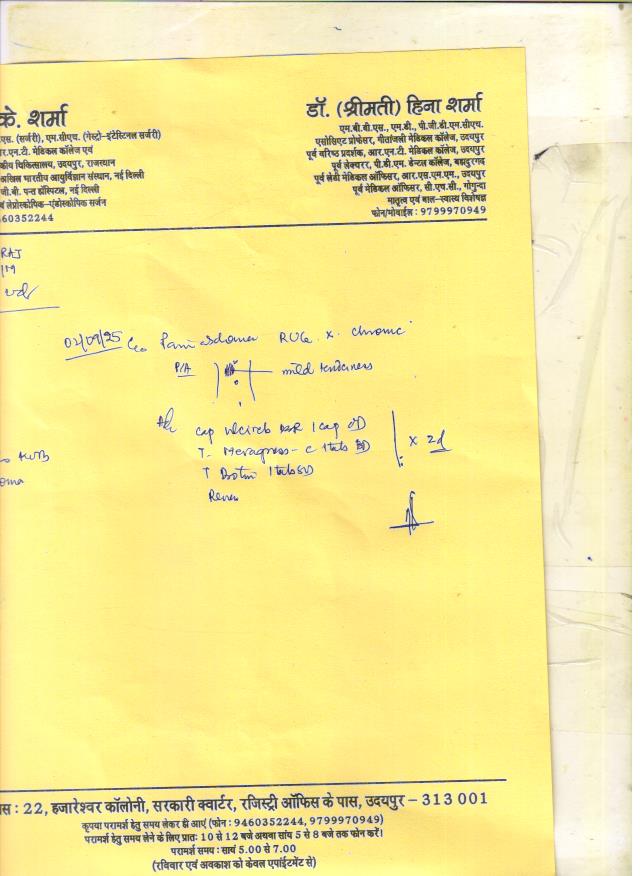 के. शर्मा
एस. (सर्जरी), एम.सीएच. (गेस्ट्रो-इंटेस्टिनल सर्जरी)
आर.एन.टी. मेडिकल कॉलेज एवं
कीय चिकित्सालय, उदयपुर, राजस्थान
अखिल भारतीय आयुर्विज्ञान संस्थान, नई दिल्ली
जी.बी. पन्त हॉस्पिटल, नई दिल्ली
वं लेप्रोस्कोपिक-एंडोस्कोपिक सर्जन
60352244
डॉ. (श्रीमती) हिना शर्मा
एम.बी.बी.एस., एम.डी., पी.जी.डी.एम.सीएच.
एसोसिएट प्रोफेसर, गीतांजली मेडिकल कॉलेज, उदयपुर
पूर्व वरिष्ठ प्रदर्शक, आर.एन.टी. मेडिकल कॉलेज, उदयपुर
पूर्व लेक्चरर, पी.डी.एम. डेन्टल कॉलेज, बहादुरगढ़
पूर्व लेडी मेडिकल ऑफिसर, आर.एस.एम.एम., उदयपुर
पूर्व मेडिकल ऑफिसर, सी.एच.सी., गोगुन्दा
मातृत्व एवं बाल-स्वास्थ्य विशेषज्ञ
फोन/मोबाईल : 9799970949
RAJ
/M
02/09/25 c/o Pain abdomen RUQ x chronic
P/A mild tenderness
Adv
cap 1 cap OD
T. 1 tab BD x 2d
T 1 tab SOS
Review
oma
स : 22, हजारेश्वर कॉलोनी, सरकारी क्वार्टर, रजिस्ट्री ऑफिस के पास, उदयपुर – 313 001
कृपया परामर्श हेतु समय लेकर ही आएं (फोन : 9460352244, 9799970949)
परामर्श हेतु समय लेने के लिए प्रातः 10 से 12 बजे अथवा सांय 5 से 8 बजे तक फोन करें।
परामर्श समय : सायं 5.00 से 7.00
(रविवार एवं अवकाश को केवल एपांईटमेंट से)